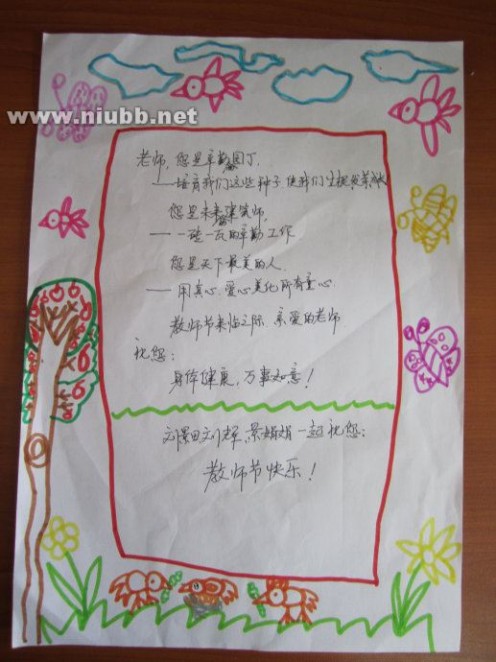 www.niubb.net
老师,您是辛勤园丁,
——培育我们这些种子使我们生根发芽
您是未来建筑师,
——一砖一瓦的辛勤工作
您是天下最美的人
——用真心、爱心美化所有童心
教师节来临之际,亲爱的老师
祝您:
身体健康,万事如意!
一起祝您:
教师节快乐!